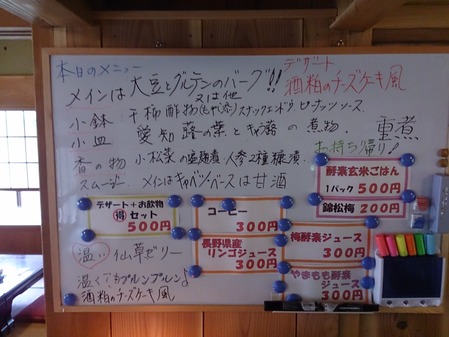 本日のメニュー
メインは 大豆とグルテンのバーグ!!
デザート
酒粕のチーズケーキ風
又は他
小鉢: 干柿酢物 スナックエンドウ
小皿 愛知蕗の葉と の煮物.
重煮
お持ち帰り!
香の物 小松菜の塩麹漬 人参2種糠漬
スムージー. メインはキャベツ・ベースは甘酒
酵素玄米ごはん
1パック 500円
錦松梅 200円
デザート+お飲物
得 セット
500円
コーヒー
300円
長野県産
リンゴジュース
300円
梅酵素ジュース
300円
やまもも酵素
ジュース
300円
温い 仙草ゼリー
温くてもプルンプルン♪
酒粕のチーズケーキ風